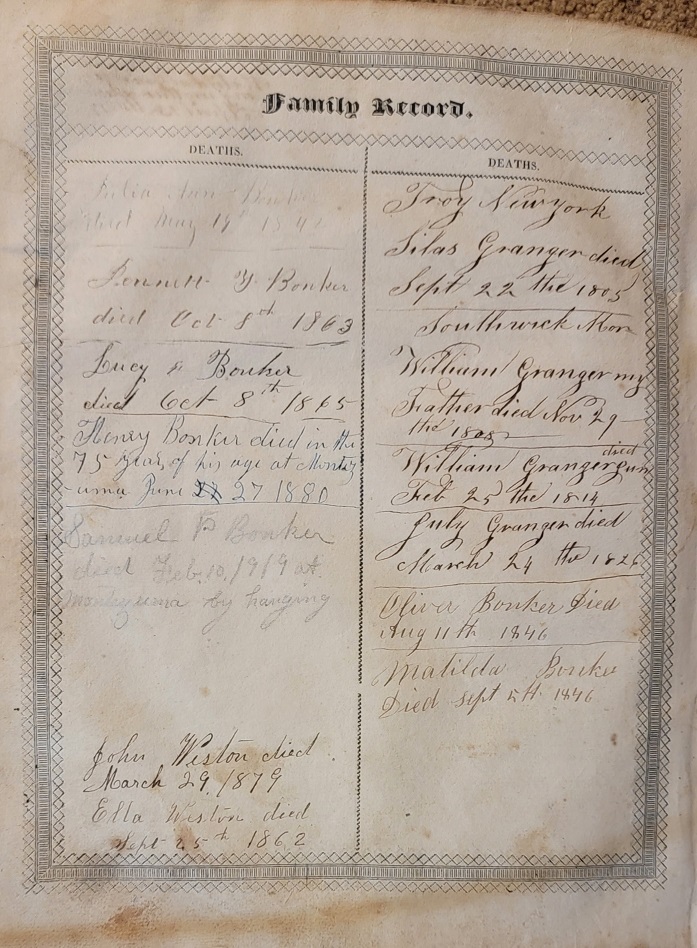 Family Record.
DEATHS.
Julia Ann Bonker
died May 19th
Bennett Y Bonker
died Oct 8th 1863
Lucy Bonker
died Oct 8th 1865
Henry Bonker died in the
75 year of his age at Montez
-uma June 27 1880
Samuel P Bonker
died Feb. 10, 1919 at
Montezuma by hanging
John Weston died
March 29, 1879
Ella Weston died
Sept 25th 1862
DEATHS.
Troy New york
Silas Granger died
Sept 22 the 1805
Southwick
William Granger my
Father died Nov 29
the 1808
died
William Granger jun
Feb 25 the 1814
July Granger died
March 24 the 1826
Oliver Bonker Died
Aug 11th 1846
Matilda Bonker
Died Sept 5th 1846